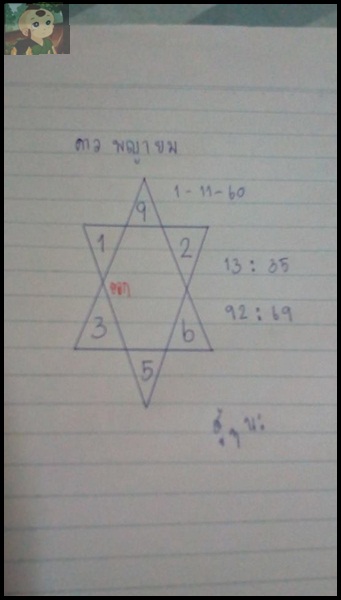 ดาว พญายม
1-11-60
9
1 2
13:35
ออก
92:69
3 6
5
สู้ๆ นะ